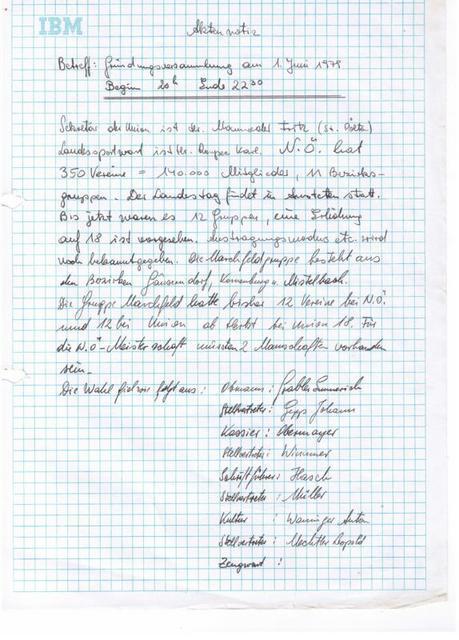 IBM
Aktennotiz
Betreff: Gründungsversammlung am 1. Juni 1979
Beginn 20h Ende 22 30
Sekretär der Union ist der. Fritz (St. Pölten)
Landessportwart ist Hr. Karl. N.Ö. hat
350 Vereine = 140.000 Mitglieder, 11 Bezirks-
gruppen. Der Landestag findet in Amstetten statt.
Bis jetzt waren es 12 Gruppen, eine Erhöhung
auf 18 ist vorgesehen. Austragungsmodus etc. wird
noch bekanntgegeben. Die Marchfeldgruppe besteht aus
den Bezirken Gänserndorf, Korneuburg u. Mistelbach.
Die Gruppe Marchfeld hatte bisher 12 Vereine bei N.Ö.
und 12 bei Union ab Herbst bei Union 18. Für
die N.Ö-Meisterschaft müssten 2 Manschaften vorhanden
sein.
Die Wahl fiel wie folgt aus: Obmann: Emmerich
Stellvertreter: Gepp Johann
Kassier: Obermayer
Stellvertreter: Wimmer
Schriftführer: Hasch
Stellvertreter: Müller
Kultur : Anton
Stellvertreter: Mechtler Leopold
Zeugwart :